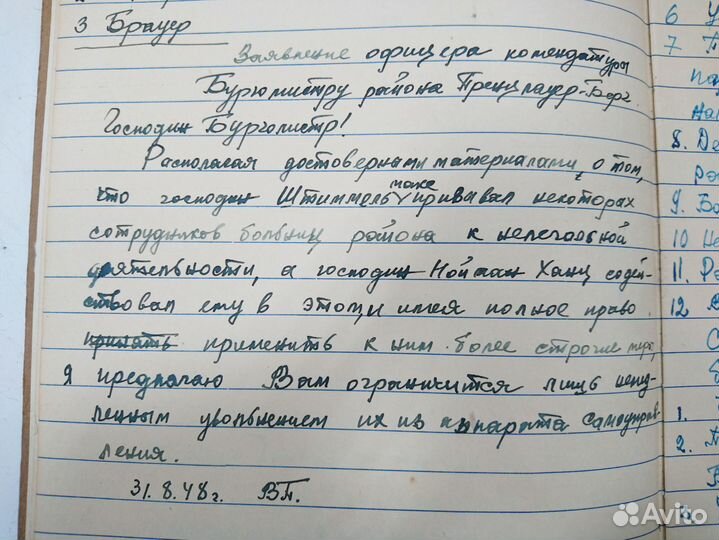 3 Брауер
Заявление офицера комендатуры
Бургомистру района Пренцлауер-Берг.
Господин Бургомистр!
Располагая достоверными материалами, о том,
что господин Штиммель также призывал некоторах
сотрудников больниц района к нелегальной
деятельности, а господин Нойман Ханц содей-
ствовал ему в этом, и имея полное право
принять применить к ним более строгие меры,
я предлагаю Вам ограничится лишь немед-
ленным увольнением их из аппарата самоуправ-
ления.
31.8.48г. ВП.
6
7
8. Де
9. Ба
10 Не
11. Ра
12
1.
2.
Avito